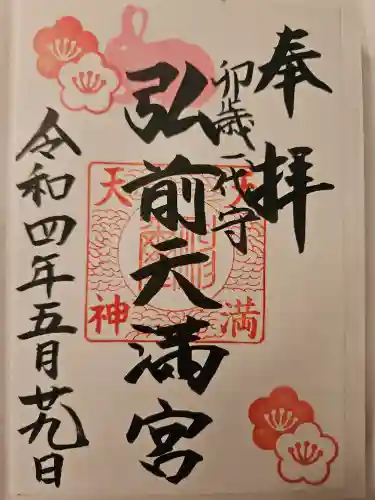 奉拝
卯歳一代守
弘前天満宮
天満
天神
令和四年五月廿九日